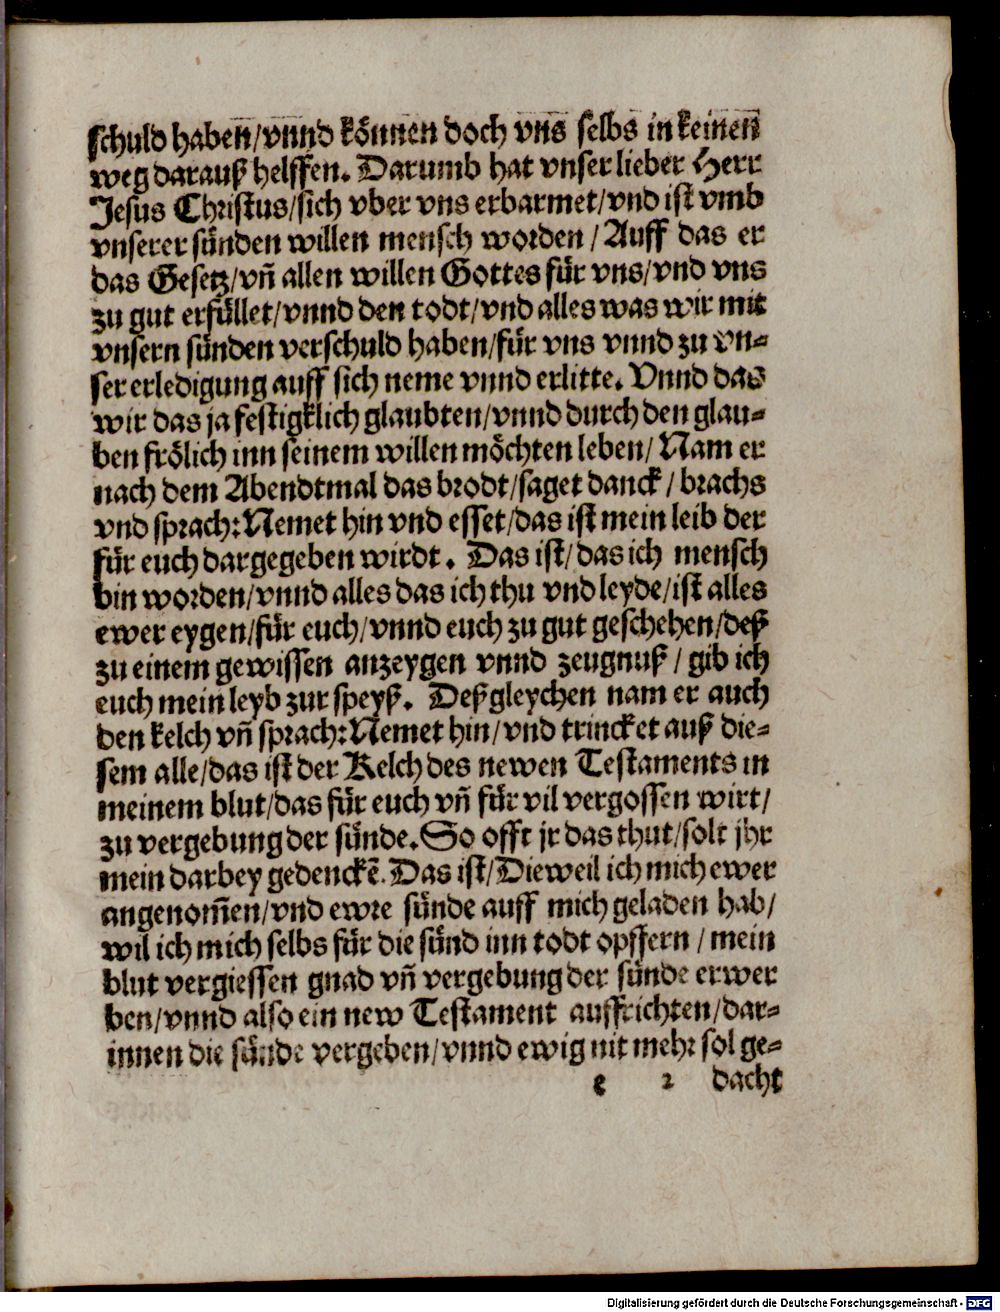 schuld haben/vnnd können doch vns selbs in keinen
weg darauß helffen. Darumb hat vnser lieber Herr
Jesus Christus/sich vber vns erbarmet/vnd ist vmb
vnserer sünden willen mensch worden / Auff das er
das Gesetz/vñ allen willen Gottes für vns/vnd vns
zu gut erfüllet/vnnd den todt/vnd alles was wir mit
vnsern sünden verschuld haben/für vns vnnd zu vn-
ser erledigung auff sich neme vnnd erlitte. Vnnd das
wir das ja festigklich glaubten/vnnd durch den glau-
ben frölich inn seinem willen möchten leben/ Nam er
nach dem Abendtmal das brodt/saget danck / brachs
vnd sprach: Nemet hin vnd esset/das ist mein leib der
für euch dargegeben wirdt. Das ist/ das ich mensch
bin worden/vnnd alles das ich thu vnd leyde/ist alles
ewer eygen/für euch/vnnd euch zu gut geschehen/deß
zu einem gewissen anzeygen vnnd zeugnuß / gib ich
euch mein leyb zur speyß. Deßgleychen nam er auch
den kelch vñ sprach: Nemet hin/vnd trincket auß die-
sem alle/das ist der Kelch des newen Testaments in
meinem blut/das für euch vñ für vil vergossen wirt/
zu vergebung der sünde. So offt jr das thut/solt jhr
mein darbey gedenckẽ. Das ist/Dieweil ich mich ewer
angenom̃en/vnd ewre sünde auff mich geladen hab/
wil ich mich selbs für die sünd inn todt opffern / mein
blut vergiessen gnad vñ vergebung der sünde erwer
ben/vnnd also ein new Testament auffrichten/dar-
innen die sünde vergeben/vnnd ewig nit mehr sol ge-
e 2 dacht
Digitalisierung gefördert durch die Deutsche Forschungsgemeinschaft - DFG